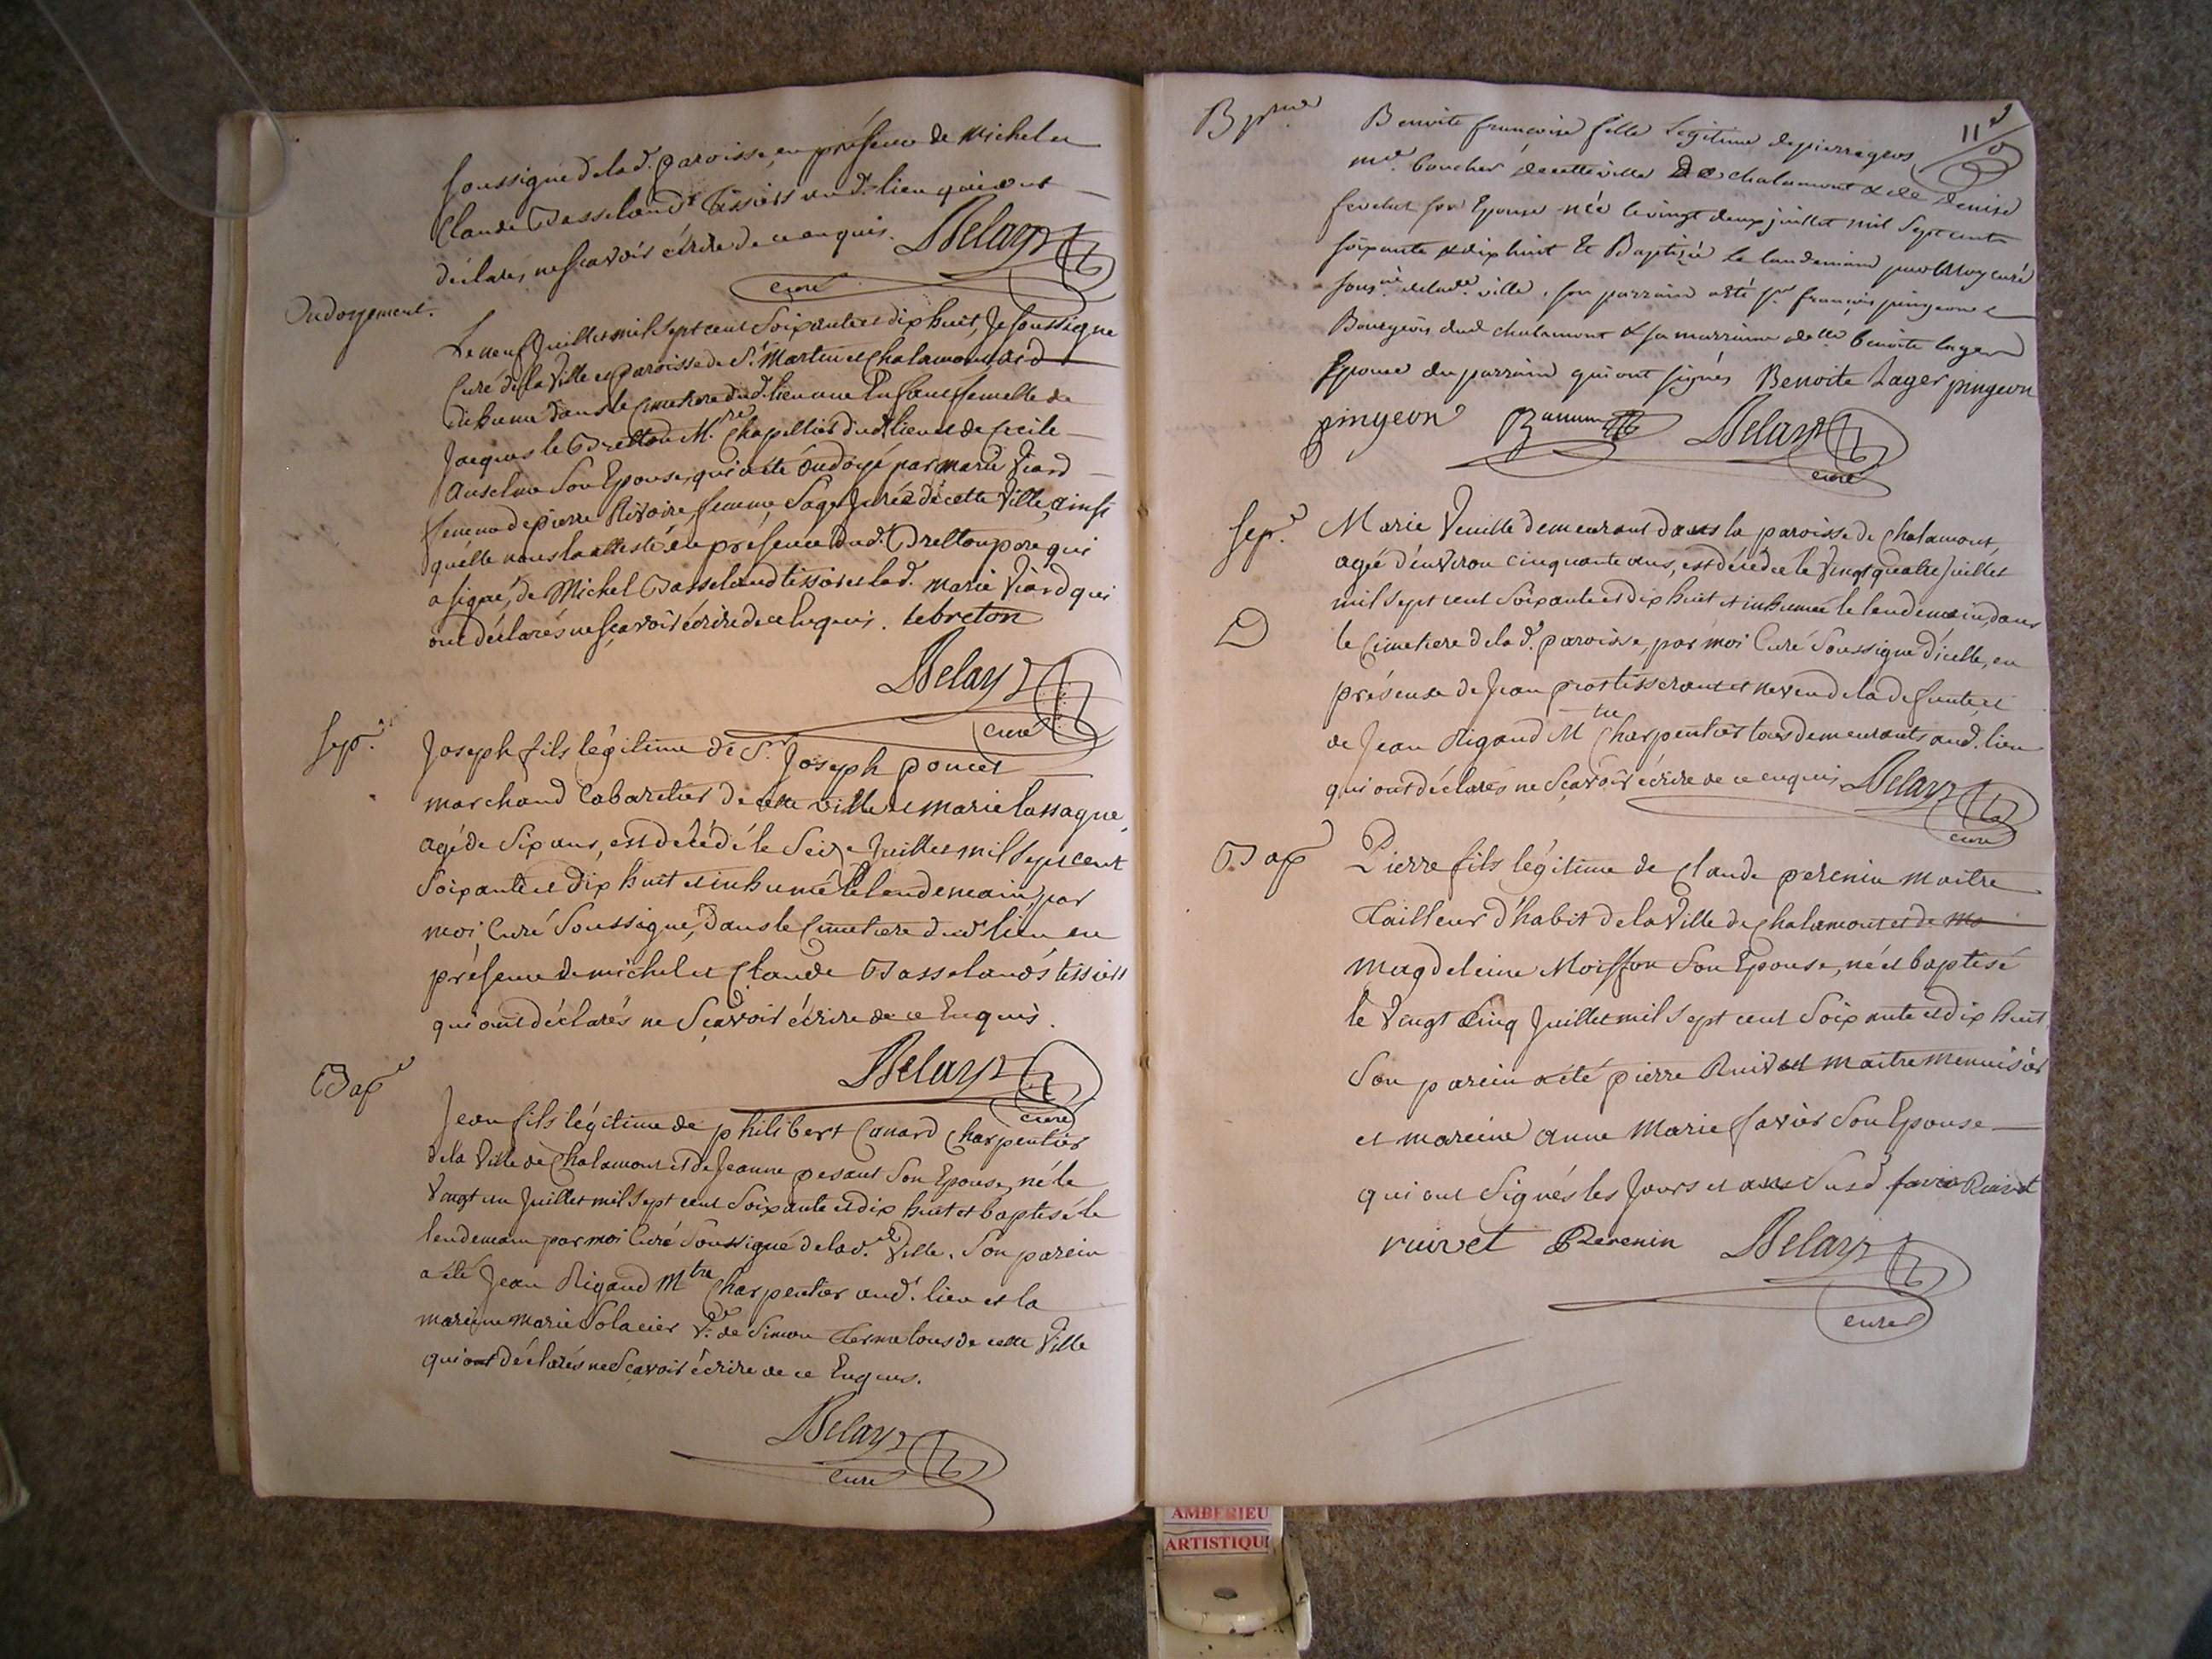 soussigné de lad. paroisse, en présence de Michel et
Claude Basseland tissiers aud. lieu qui ont
déclarés ne sçavoir écrire de ce enquis. Delay
curé
Ondoyement.
Le neuf Juillet mil sept cent soixante et dix huit, Je soussigné
Curé de la Ville et paroisse de St. Martin de Chalamont, ai
inhumé dans le Cimetiere dud. lieu une Enfant femelle de
Jacques le Bretton M.re Chapellier dud. lieu et de Cecile
Anselme son Epouse, qui a été ondoyé par marie Viard
femme de pierre Rivoire, femme Sage Jurée de cette Ville, ainsi
qu'elle nous l'a attesté, en présence dud. Bretton pere qui
a signé, de Michel Basseland tissier et lad. marie Viard qui
ont déclarés ne sçavoir écrire de ce Enquis. lebreton
Delay
curé
Sep.e
Joseph fils légitime de Sr. Joseph poncet
marchand Cabaretier de cette ville et marie lassagne,
agé de six ans, est décédé le Seize Juillet mil sept cent
soixante et dix huit et inhumé le lendemain, par
moi Curé Soussigné, dans le Cimetiere dud. lieu en
présence de michel et Claude Basselands tissiers
qui ont déclarés ne Sçavoir écrire de ce Enquis.
Delay
curé
Bap.e
Jean fils légitime de philibert Canard Charpentier
de la Ville de Chalamont et de Jeanne pesant Son Epouse, né le
Vingt un Juillet mil sept cent Soixante et dix huit et baptisé le
lendemain par moi Curé Soussigné de lad. Ville. Son parein
a été Jean Rigaud Mtre Charpentier aud. lieu et la
mareine marie Solacier Ve. de Simon ferme tous de cette Ville
qui ont déclarés ne Sçavoir écrire de ce Enquis.
Delay
curé
11e
Bpme
Benoite françoise fille legitime de pierre gros
md. boucher de cette ville de chalamont & de denise
son Epouse née le vingt deux juillet mil sept cent
soixante & dix huit Et Baptizée le landemain par Moy curé
sousné. de lad. ville, son parrain a été sr. françois pingeon
Bourgeois dud. chalamont & sa marraine delle. benoite lager
Epouse du parrain qui ont signés Benoite Lager pingeon
pingeon Delay
curé
Sep.e
Marie Veuille demeurant dans la paroisse de Chalamont,
agée d'environ cinquante ans, est décédée le Vingt quatre Juillet
mil sept cent Soixante et dix huit et inhumée le lendemain, dans
le Cimetiere de lad. paroisse, par moi Curé Soussigné d'icelle, en
présence de Jean prost tisserant et neveu de la defunte, et
de Jean Rigaud Mtre Charpentier tous demeurants aud. lieu
qui ont déclarés ne Sçavoir écrire de ce enquis. Delay
curé
Bap.e
Pierre fils légitime de Claude perenin maitre
Tailleur d'habit de la Ville de Chalamont et de ma
magdeleine Moisson Son Epouse, né et baptisé
le Vingt Cinq Juillet mil sept cent Soixante et dix huit,
Son parein a été pierre Ruivet maitre menuisier
et mareine anne Marie favier Son Epouse
qui ont Signés les Jours et ans Susd. favie Ruivet
ruivet Perenin Delay
curé
AMBERIEU
ARTISTIQU